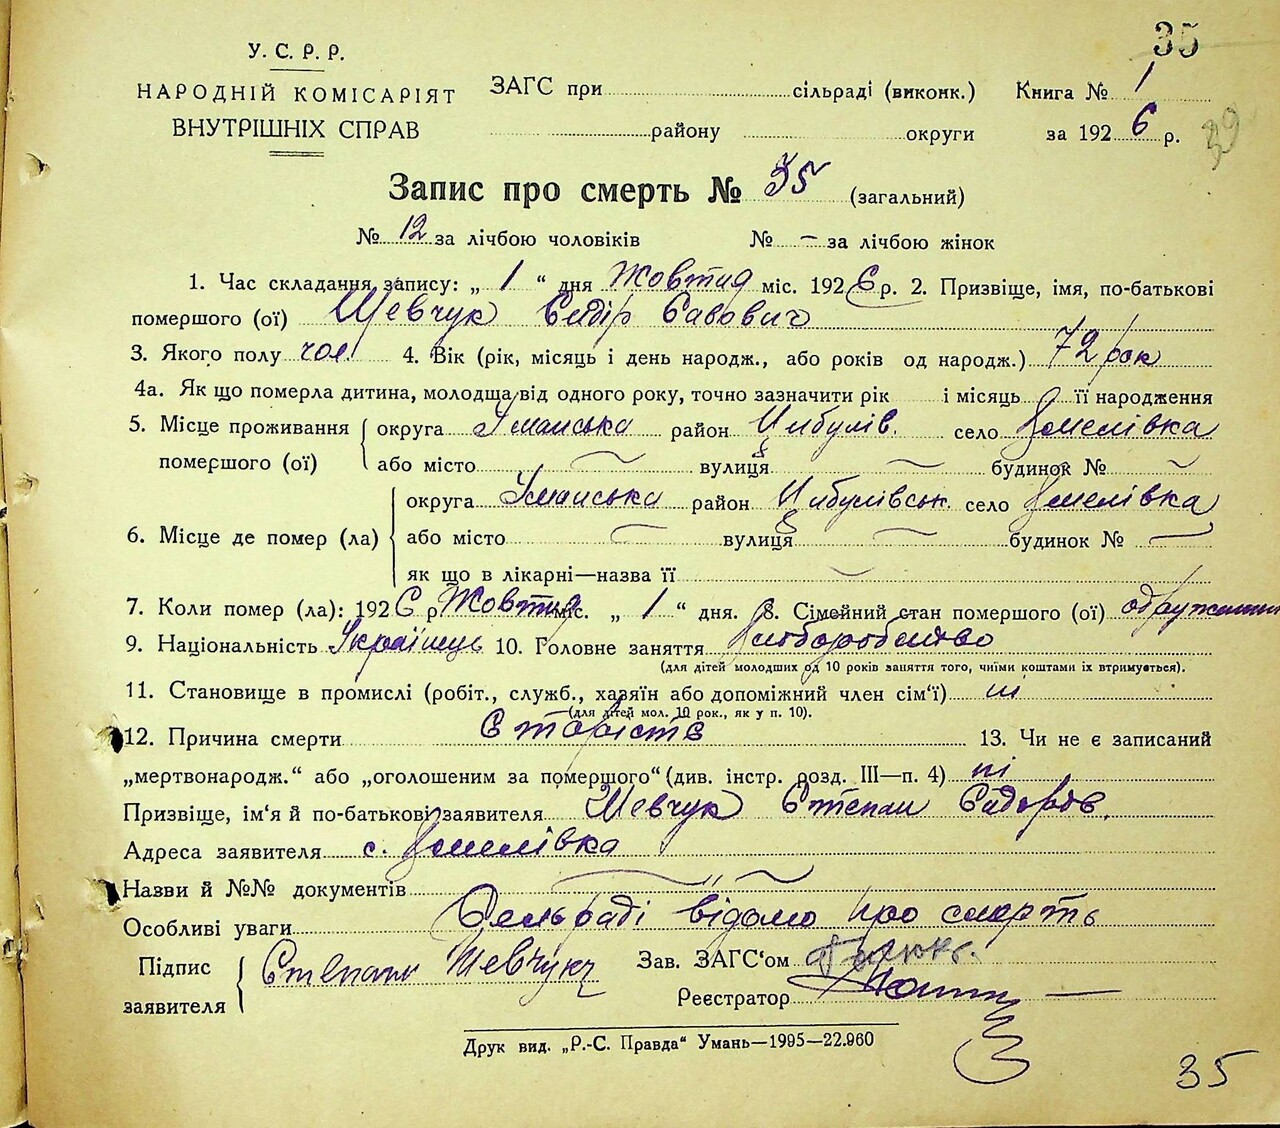 35
У. С. Р. Р.
НАРОДНІЙ КОМІСАРІЯТ
ВНУТРІШНІХ СПРАВ
ЗАГС при сільраді (виконк.) Книга № 1
району округи за 1926 р.
39
Запис про смерть № 35 (загальний)
№ 12 за лічбою чоловіків № – за лічбою жінок
1. Час складання запису: „ 1 “ дня Жовтня міс. 1926 р. 2. Призвіще, імя, по-батькові
помершого (ої) Шевчук Сидір Савович
3. Якого полу чол. 4. Вік (рік, місяць і день народж., або років од народж.) 72 рок
4а. Як що померла дитина, молодша від одного року, точно зазначити рік і місяць її народження
5. Місце проживання помершого (ої) округа Уманська район Цибулів. село
або місто — вулиця — будинок № —
6. Місце де помер (ла) округа Уманська район Цибулівськ. село
або місто — вулиця — будинок № —
як що в лікарні—назва її —
7. Коли помер (ла): 1926 р Жовтня міс. „ 1 “ дня. 8. Сімейний стан помершого (ої)
9. Національність Українець 10. Головне заняття Хлібороб
(для дітей молодших од 10 років заняття того, чиїми коштами їх втримується).
11. Становище в промислі (робіт., служб., хазяїн або допоміжний член сім‘ї)
(для дітей мол. 10 рок., як у п. 10).
12. Причина смерти Старість 13. Чи не є записаний
„мертвонародж.“ або „оголошеним за помершого“ (див. інстр. розд. III—п. 4) ні
Призвіще, ім‘я й по-батькові заявителя Шевчук Степан Сидоров.
Адреса заявителя с.
Назви й №№ документів — „ —
Особливі уваги Сельраді відомо про смерть
Підпис заявителя Степан Шевчук
Зав. ЗАГС‘ом
Реєстратор
Друк вид. „Р.-С. Правда“ Умань—1995—22.960
35